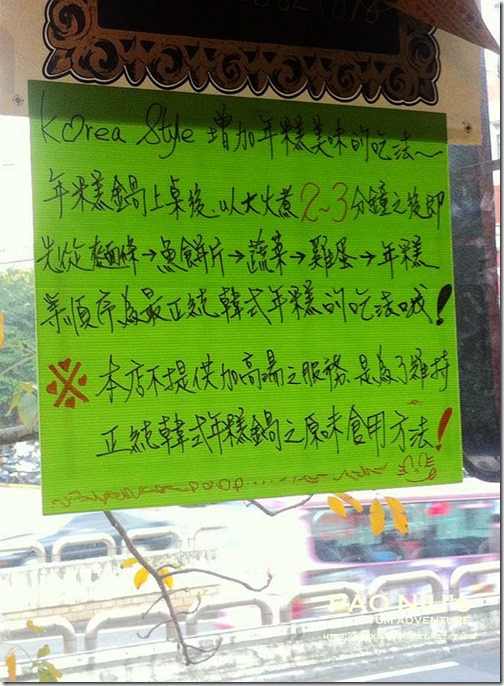 Korea Style 增加年糕美味的吃法~
年糕鍋上桌後,以大火煮2~3分鐘之後即
先從麵條→魚餅片→蔬菜→雞蛋→年糕
等順序為最正統韓式年糕的吃法哦!
※本店不提供加高湯之服務,是為了維持
正統韓式年糕鍋之原味食用方法!